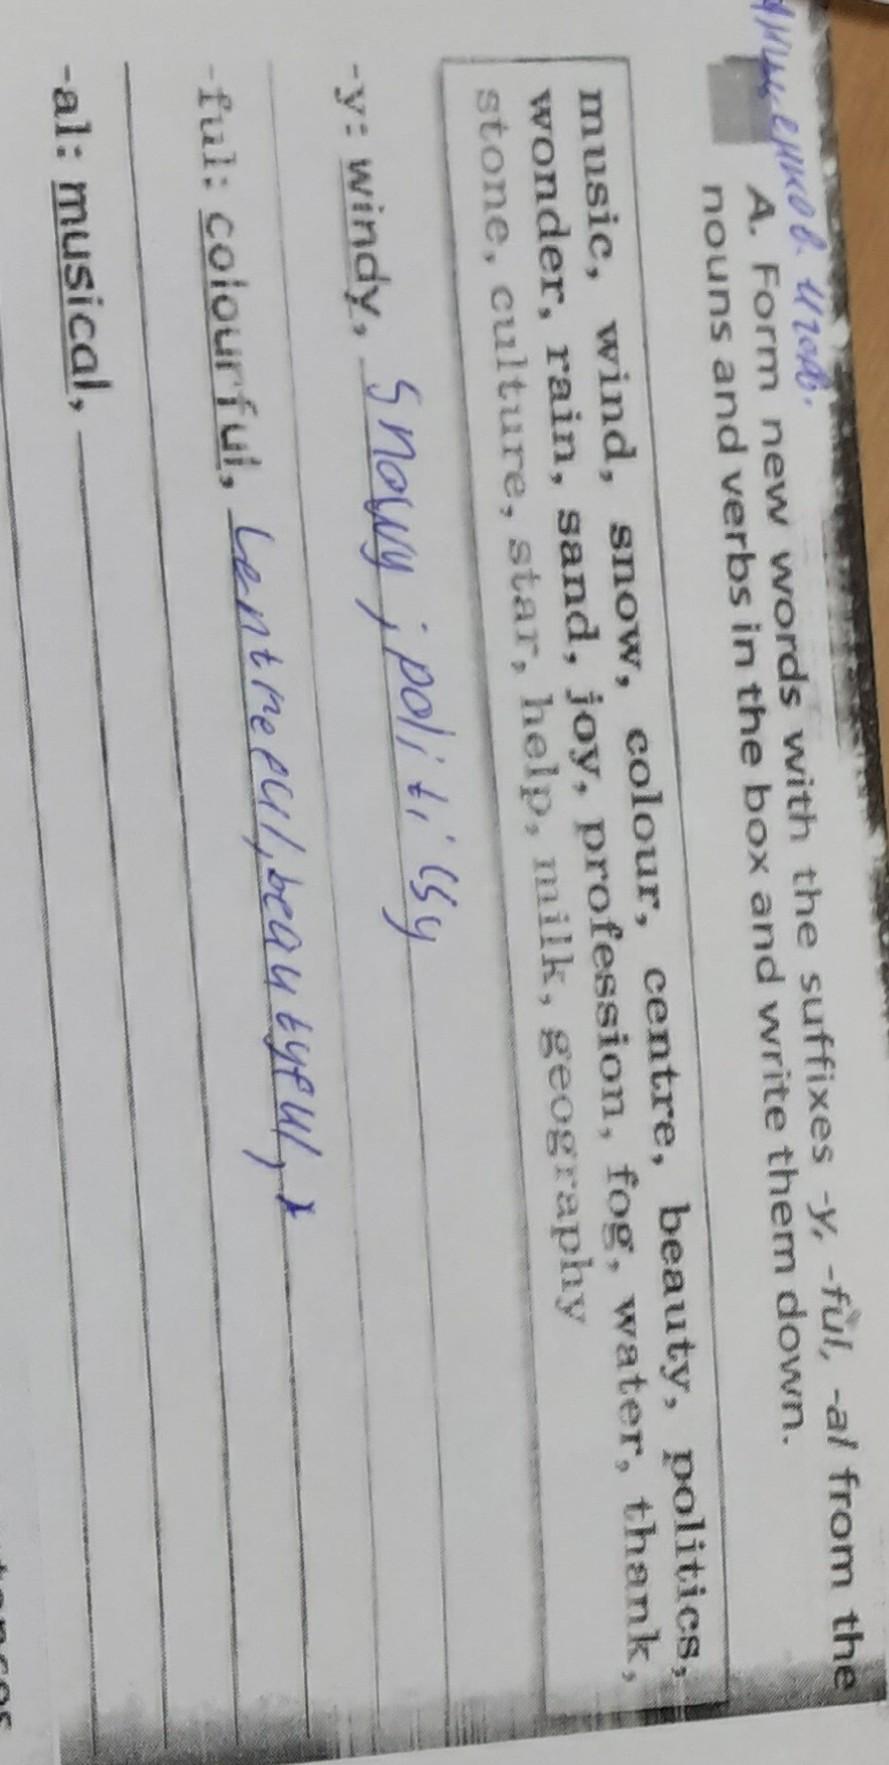 A. Form new words with the suffixes -y, -ful, -al from the
nouns and verbs in the box and write them down.
music, wind, snow, colour, centre, beauty, politics,
wonder, rain, sand, joy, profession, fog, water, thank,
stone, culture, star, help, milk, geography
-y: windy, snowy, politicsy
-ful: colourful, centreful, beautyful,
-al: musical,